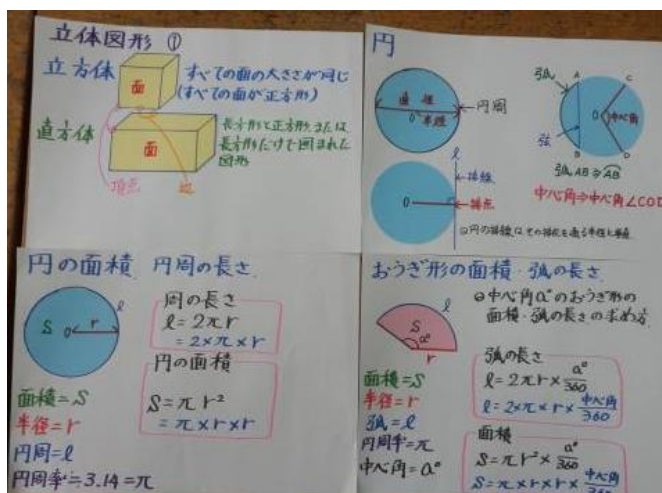 立体図形 ①
立方体
面
すべての面の大きさが同じ
(すべての面が正方形)
直方体
面
長方形と正方形、または
長方形だけで囲まれた
図形
頂点
辺
円
直径
半径
O
円周
弧
弦
A
B
C
D
O
中心角
弧AB⇒AB
中心角⇒中心角∠COD
l
接線
O
接点
円の接線は、その接点を通る半径と垂直
円の面積 円周の長さ
S
O
r
l
周の長さ
l=2πr
=2×π×r
円の面積
S=πr²
=π×r×r
面積=S
半径=r
円周=l
円周率≒3.14=π
おうぎ形の面積・弧の長さ
l
S
a°
r
中心角a°のおうぎ形の
面積・弧の長さの求め方
弧の長さ
l=2πr×a°/360
l=2×π×r×中心角/360
面積
S=πr²×a°/360
S=π×r×r×中心角/360
面積=S
半径=r
弧=l
円周率=π
中心角=a°